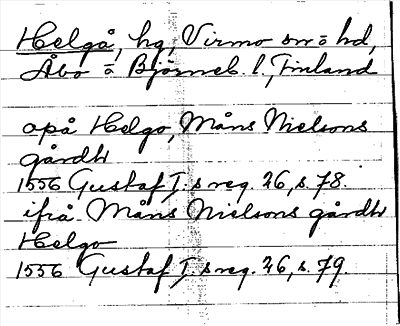 Helgå, hg, Virmo sn o hd,
Åbo o Björneb. l., Finland
opå Helgo, Måns Nielsons
gårdh
1556 Gustaf I:s reg. 26, s. 78.
ifrå Måns Nielsons gårdh
Helgo
1556 Gustaf I:s reg. 26, s. 79.